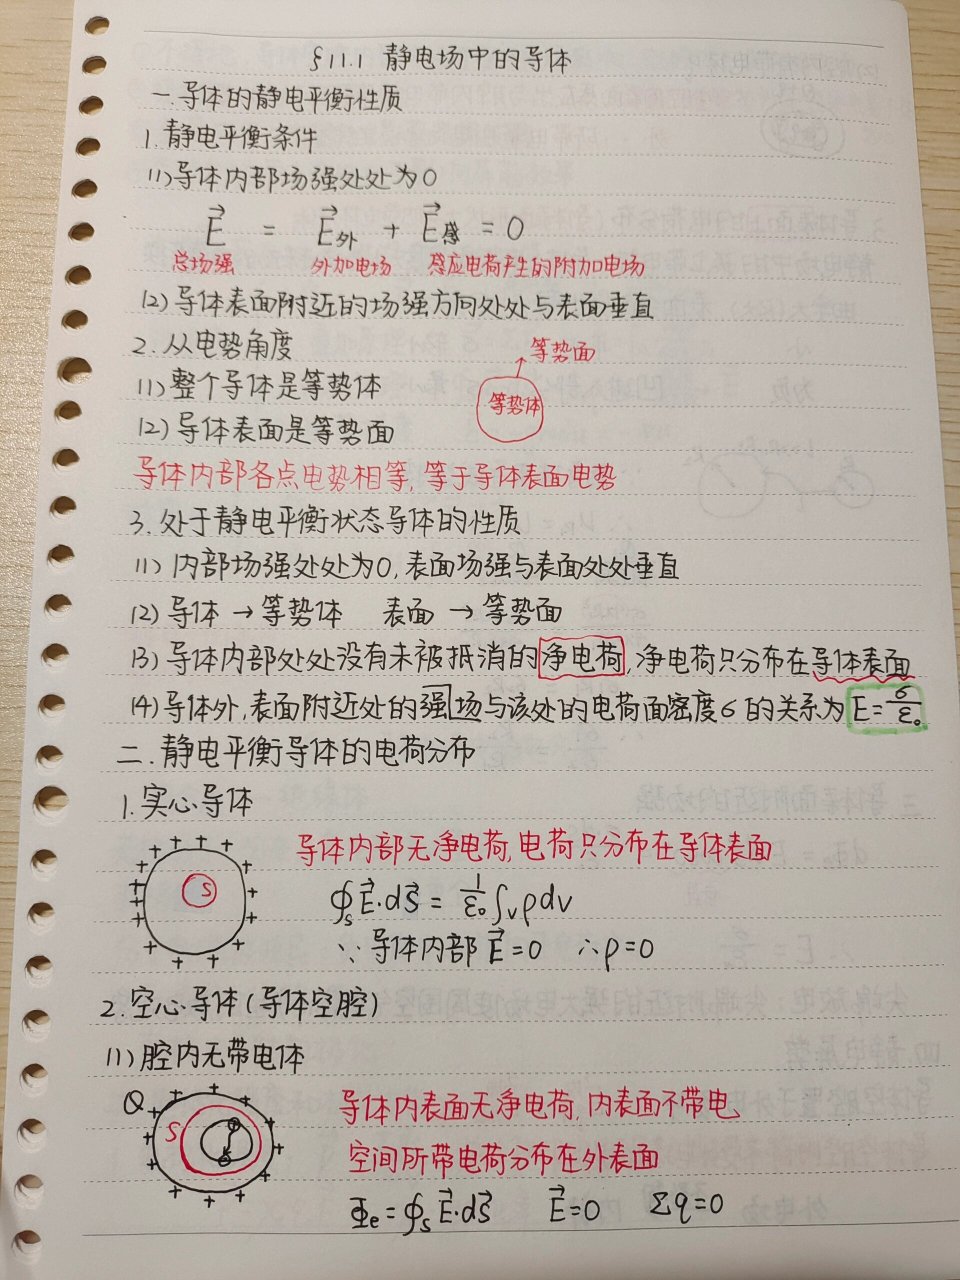 §11.1 静电场中的导体
一.导体的静电平衡性质
1.静电平衡条件
(1)导体内部场强处处为0
E⃗ = E⃗外 + E⃗感 = 0
总场强 外加电场 感应电荷产生的附加电场
(2)导体表面附近的场强方向处处与表面垂直
2.从电势角度
等势面
(1)整个导体是等势体
等势体
(2)导体表面是等势面
导体内部各点电势相等,等于导体表面电势
3.处于静电平衡状态导体的性质
(1)内部场强处处为0,表面场强与表面处处垂直
(2)导体→等势体 表面→等势面
(3)导体内部处处没有未被抵消的净电荷,净电荷只分布在导体表面
(4)导体外,表面附近处的强场与该处的电荷面密度σ的关系为E=σ/ε₀
二.静电平衡导体的电荷分布
1.实心导体
导体内部无净电荷,电荷只分布在导体表面
S
∮s E⃗·dS⃗ = 1/ε₀ ∫v ρdv
∵导体内部E⃗=0 ∴ρ=0
2.空心导体(导体空腔)
(1)腔内无带电体
Q
S
导体内表面无净电荷,内表面不带电
空间所带电荷分布在外表面
Φe=∮s E⃗·dS⃗ E⃗=0 Σq=0